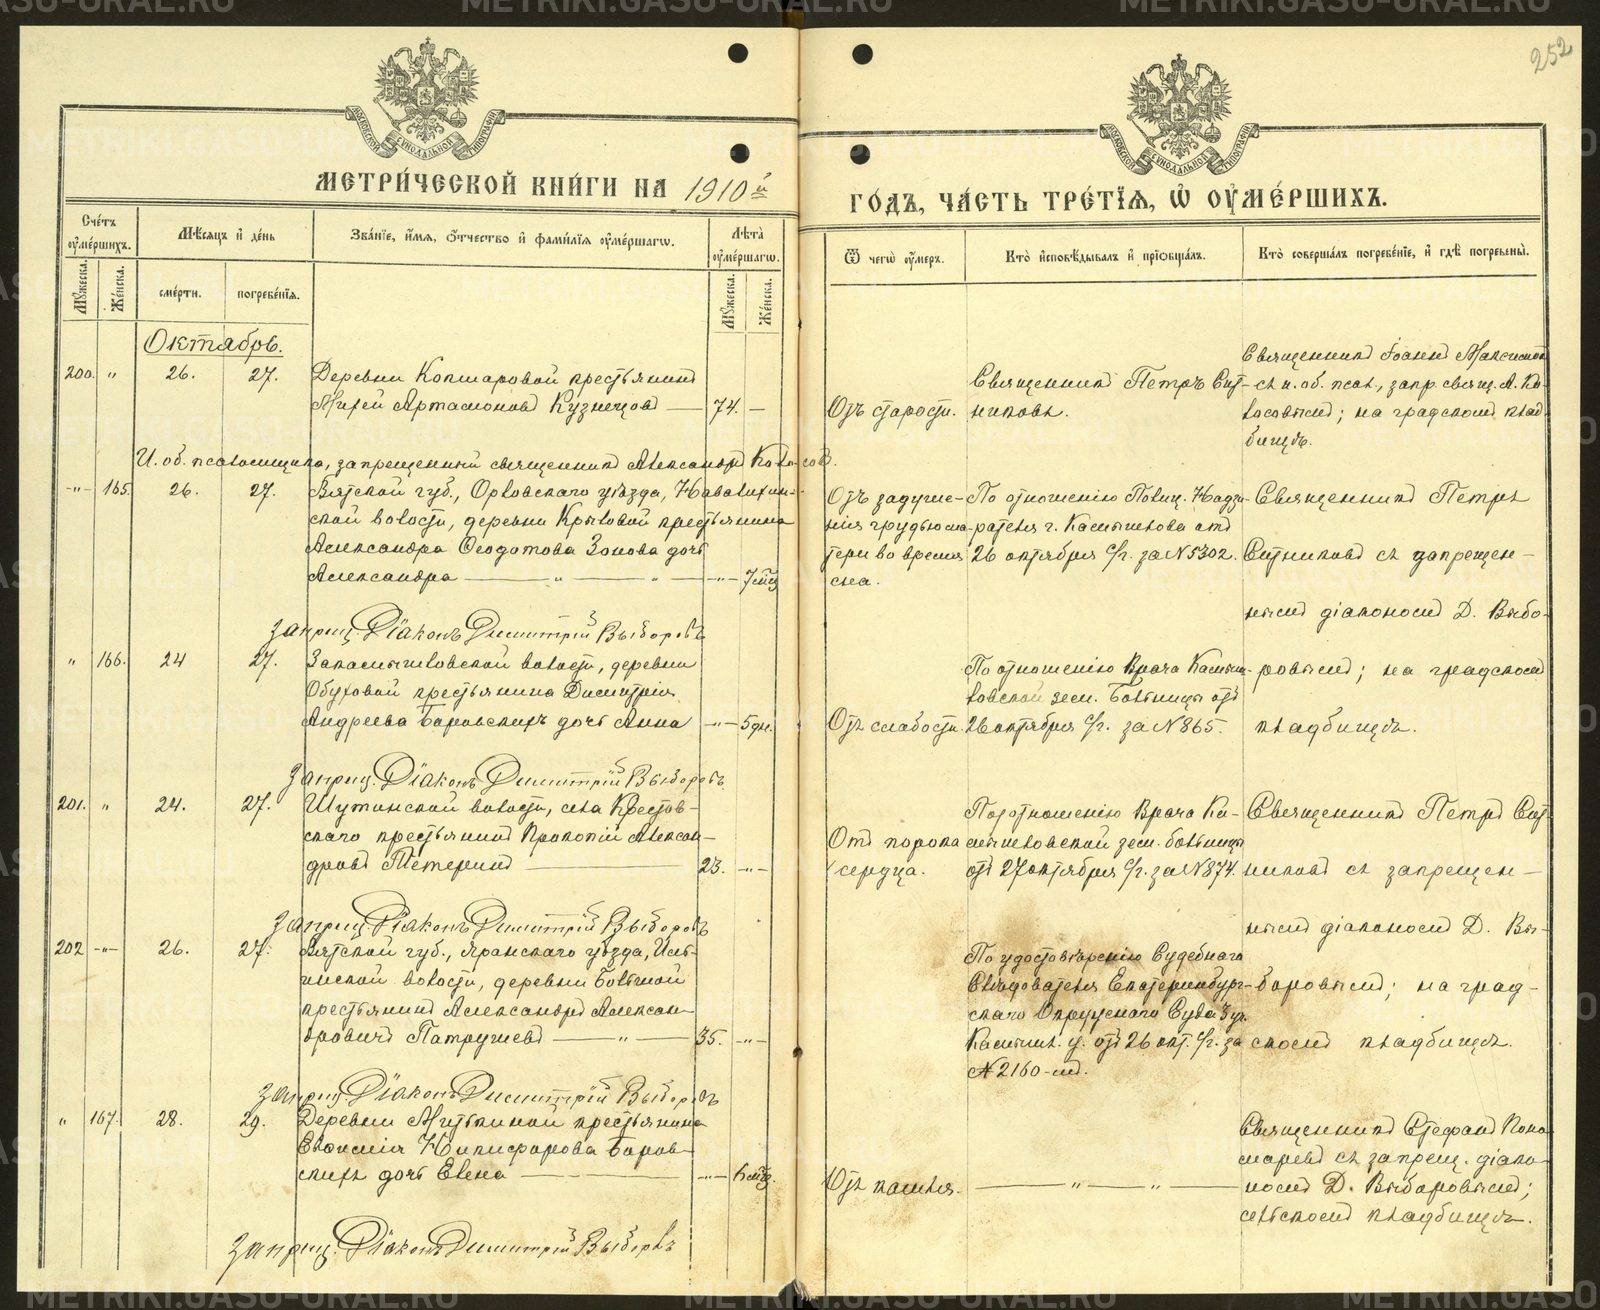 252
МЕТРИ́ЧЕСКОЙ КНИ́ГИ НА 1910й
ГО́ДЪ, ЧА́СТЬ ТРЕ́ТЇѦ, Ѡ҆ ОУ҆МЕ́РШИХЪ.
Сче́тъ оу҆ме́ршихъ.
Мѣ́сѧцъ и҆ де́нь
Зва́нїе, и҆́мѧ, ѻ҆́тчество и҆ фами́лїѧ оу҆ме́ршагѡ.
Лѣ́та оу҆ме́ршагѡ.
Ѿ чегѡ̀ оу҆́меръ.
Кто̀ и҆сповѣ́дывалъ и҆ прїѡбща́лъ.
Кто̀ соверша́лъ погребе́нїе, и҆ гдѣ̀ погребены̀.
Мꙋ́жеска.
Же́нска.
сме́рти.
погребе́нїѧ.
Мꙋ́жеска.
Же́нска.
Октябрь.
200. " 26. 27. Деревни Кокшаровой крестьянинъ
Артамоновъ Кузнецовъ — 74. —
Отъ старости.
Священникъ Петръ Сит-
никовъ.
Священникъ Іоаннъ Максимов
съ и. об. псал., запр. свящ. А. Ко-
лосовымъ; на градскомъ клад-
бищѣ.
И. об. псаломщика, запрещенный священникъ Александръ Колосовъ.
-"- 165. 26. 27. Вятской губ., Орловскаго уѣзда,
ской волости, деревни крестьянина
Александра Ѳеодотова Зонова дочь
Александра — " — " — -"- 7 мѣс.
Отъ задуше-
нія грудью ма-
тери во время
сна.
По отношенію Полиц. Надзи-
рателя г. Камышлова отъ
26 октября с/г. за № 5302.
Священникъ Петръ
Ситниковъ съ запрещен-
нымъ діакономъ Д. Выбо-
ровымъ; на градскомъ
кладбищѣ.
запрещ. Діаконъ Димитрій Выборовъ
" 166. 24 27. Закамышловской волости, деревни
Обуховой крестьянина Димитрія
Андреева Боровскихъ дочь Анна -"- 5 дн.
Отъ слабости.
По отношенію Врача Камыш-
ловской зем. Больницы отъ
26 октября с/г. за № 865.
запрещ. Діаконъ Димитрій Выборовъ
201. " 24. 27. Шутинской волости, села Крестов-
скаго крестьянинъ Прокопій Алексан-
дровъ Тетеринъ — 23. -"-
Отъ порока
сердца.
По отношенію Врача Ка-
мышловской зем. больницы
отъ 27 октября с/г. за № 874.
Священникъ Петръ Сит-
никовъ съ запрещен-
нымъ діакономъ Д. Вы-
боровымъ; на град-
скомъ кладбищѣ.
запрещ. Діаконъ Димитрій Выборовъ
202 -"- 26. 27. Вятской губ., Яранскаго уѣзда, Иль-
инской волости, деревни Большой
крестьянинъ Александръ Алексан-
дровичъ Патрушевъ — " — 35. -"-
По удостовѣренію Судебнаго
Слѣдователя Екатеринбург-
скаго Окружнаго Суда 3 уч.
Камышл. у. отъ 26 окт. с/г. за
№ 2160-мъ.
запрещ. Діаконъ Димитрій Выборовъ
" 167. 28. 29. Деревни Мыткиной крестьянина
Евѳимія Никифорова Боров-
скихъ дочь Елена — -"- 6 мѣс.
Отъ кашля. — " — " —
Священникъ Стефанъ Поно-
маревъ съ запрещ. діако-
номъ Д. Выборовымъ;
сельскомъ кладбищѣ.
запрещ. Діаконъ Димитрій Выборовъ
METRIKI.GASO-URAL.RU